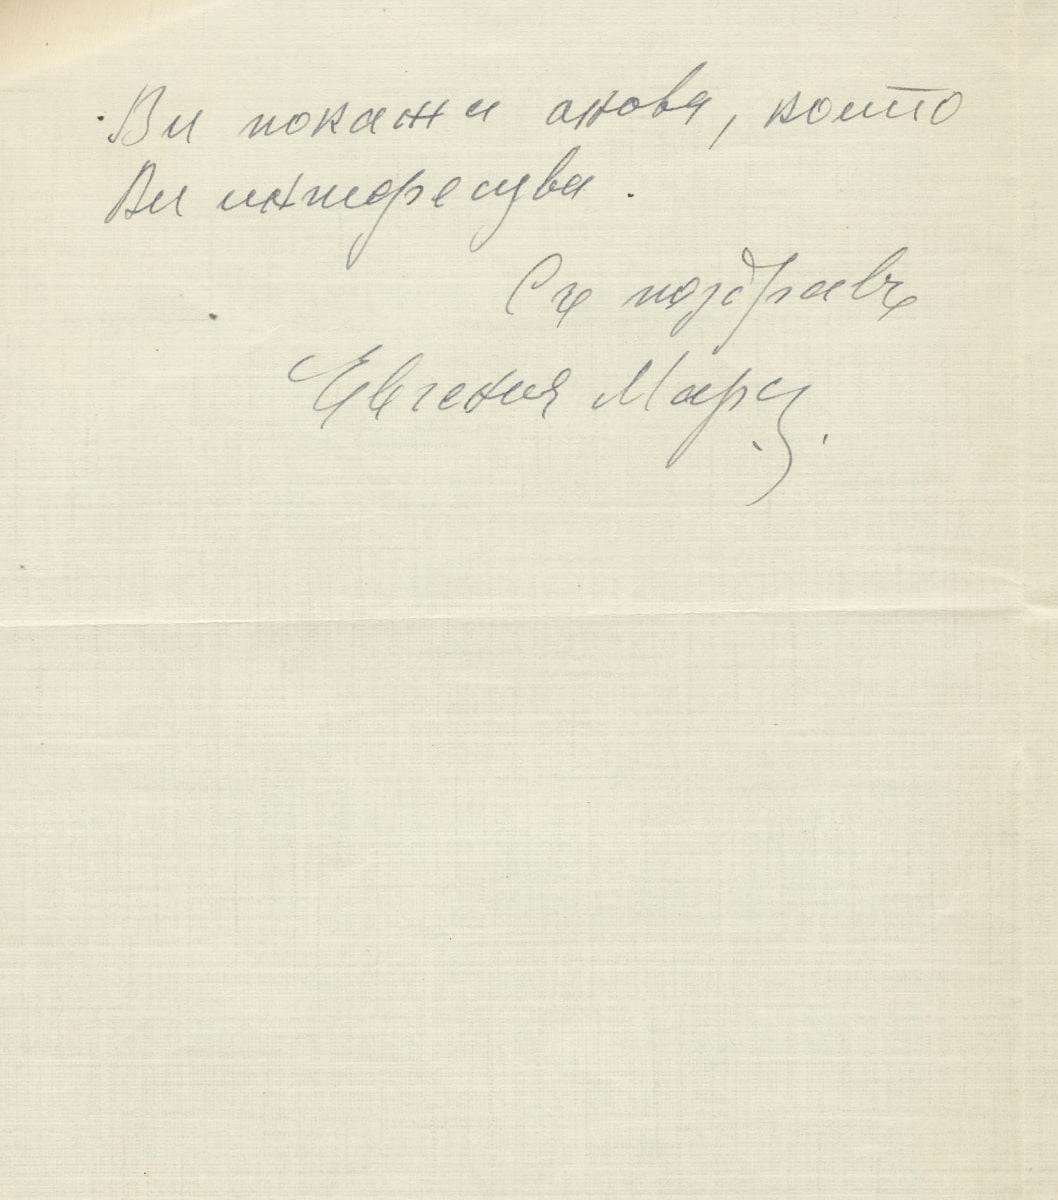 Ви покажа онова, което
Ви интересува.
Съ поздравъ
Евгения Марс